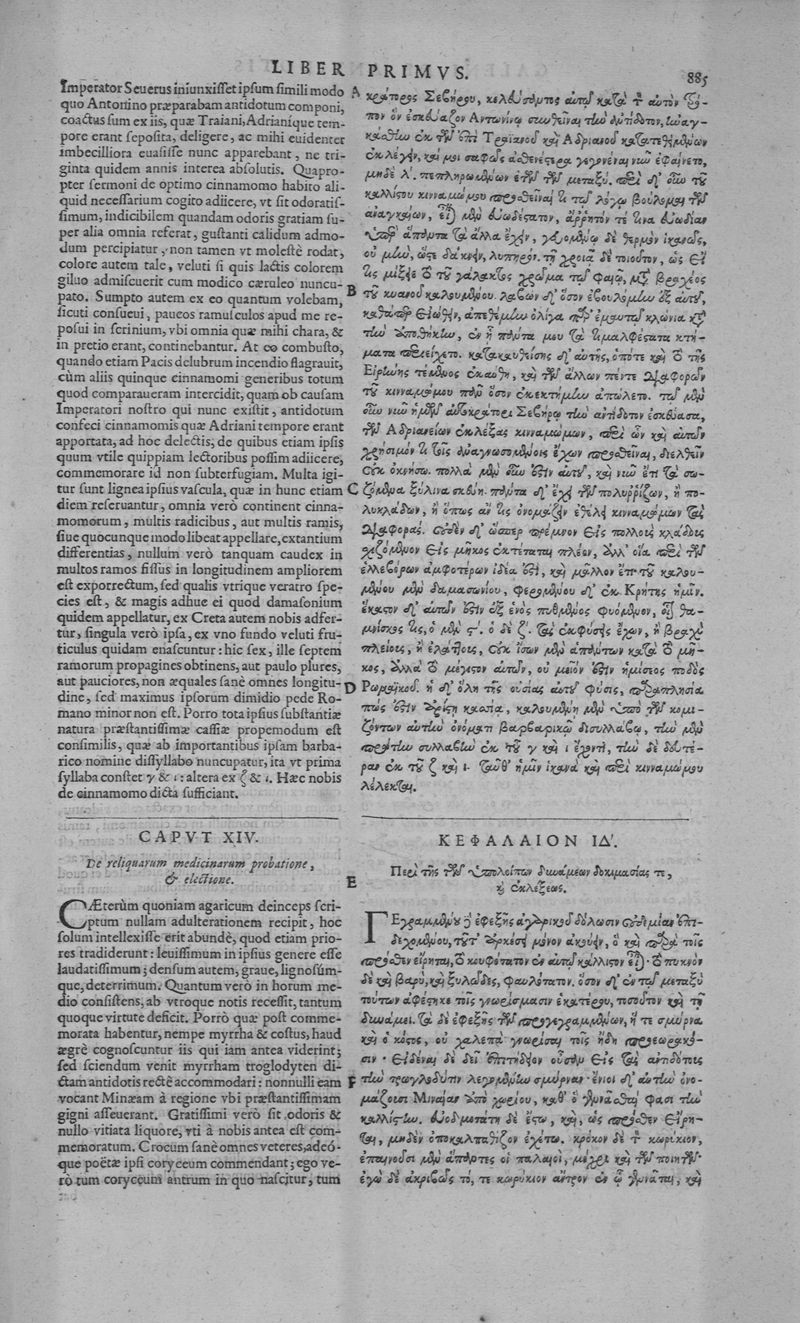 LIBER PRIMVS.
885
Imperator Seuerus iniunxisset ipsum simili modo
quo Antonino præparabam antidotum componi,
coactus sum ex iis, quæ Traiani, Adrianíque tem-
pore erant seposita, deligere, ac mihi euidenter
imbecilliora euasisse nunc apparebant, ne tri-
ginta quidem annis interea absolutis. Quapro-
pter sermoni de optimo cinnamomo habito ali-
quid necessarium cogito adiicere, vt sit odoratis-
simum, indicibilem quandam odoris gratiam su-
per alia omnia referat, gustanti calidum admo-
dum percipiatur, non tamen vt molestè rodat,
colore autem tale, veluti si quis lactis colorem
giluo admiscuerit cum modico cæruleo nuncu-
pato. Sumpto autem ex eo quantum volebam,
sicuti consueui, paucos ramusculos apud me re-
posui in scrinium, vbi omnia quæ mihi chara, &
in pretio erant, continebantur. At eo combusto,
quando etiam Pacis delubrum incendio flagrauit,
cùm aliis quinque cinnamomi generibus totum
quod comparaueram intercidit, quam ob causam
Imperatori nostro qui nunc existit, antidotum
confeci cinnamomis quæ Adriani tempore erant
apportata, ad hoc delectis; de quibus etiam ipsis
quum vtile quippiam lectoribus possim adiicere,
commemorare id non subterfugiam. Multa igi-
tur sunt lignea ipsius vascula, quæ in hunc etiam
diem reseruantur, omnia verò continent cinna-
momorum, multis radicibus, aut multis ramis,
siue quocunque modo libeat appellare, extantium
differentias, nullum verò tanquam caudex in
multos ramos fissus in longitudinem ampliorem
est exporrectum, sed qualis vtrique veratro spe-
cies est, & magis adhuc ei quod damasonium
quidem appellatur, ex Creta autem nobis adfer-
tur, singula verò ipsa, ex vno fundo veluti fru-
ticulus quidam enascuntur: hic sex, ille septem
ramorum propagines obtinens, aut paulo plures,
aut pauciores, non æquales sanè omnes longitu-
dine, sed maximus ipsorum dimidio pede Ro-
mano minor non est. Porro tota ipsius substantiæ
natura præstantissimæ cassiæ propemodum est
consimilis, quæ ab importantibus ipsam barba-
rico nomine dissyllabo nuncupatur, ita vt prima
syllaba constet γ & ι: altera ex ζ & ι. Hæc nobis
de cinnamomo dicta sufficiant.
CAPVT XIV.
De reliquarum medicinarum probatione,
& electione.
CÆterùm quoniam agaricum deinceps scri-
ptum nullam adulterationem recipit, hoc
solum intellexisse erit abundè, quod etiam prio-
res tradiderunt: leuissimum in ipsius genere esse
laudatissimum; densum autem, graue, lignosúm-
que, deterrimum. Quantum verò in horum me-
dio consistens, ab vtroque notis recessit, tantum
quoque virtute deficit. Porrò quæ post comme-
morata habentur, nempe myrrha & costus, haud
ægrè cognoscuntur iis qui iam antea viderint;
sed sciendum venit myrrham troglodyten di-
ctam antidotis rectè accommodari: nonnulli eam
vocant Minæam à regione vbi præstantissimam
gigni asseuerant. Gratissimi verò sit odoris &
nullo vitiata liquore, vti à nobis antea est com-
memoratum. Crocum sanè omnes veteres, adeó-
que poëtæ ipsi coryceum commendant; ego ve-
rò tum coryceum antrum in quo nascitur, tum
A
B
C
D
E
F
κράτορος Σεβήρου, κελεύσαντος αὐτοῦ κατὰ τὸν αὐτὸν τρό-
πον ὃν ἐσκεύαζον Ἀντωνίνῳ συνθεῖναι τὴν ἀντίδοτον, ἠναγ-
κάσθην ἐκ τῶν ἐπὶ Τραϊανοῦ καὶ Ἀδριανοῦ κατατεθειμένων
ἐκλέγειν, καί μοι σαφῶς ἀσθενέστερα γεγονέναι νῦν ἐφαίνετο,
μηδὲ λ΄. πεπληρωμένων ἐτῶν τῶν μεταξύ. περὶ δ' οὖν τοῦ
καλλίστου κινναμώμου προσθεῖναί τι τῷ λόγῳ βούλομαι τῶν
ἀναγκαίων, εἶναι μὲν εὐωδέστατον, ἄρρητόν τέ τινα εὐωδίαν
ὑπὲρ ἅπαντα τὰ ἄλλα ἔχειν, γευομένῳ δὲ θερμὸν ἱκανῶς,
οὐ μὴν, ὥστε δάκνειν, λυπηρόν. τῇ χροιᾷ δὲ τοιοῦτον, ὡς εἴ
τις μίξειε τὸ τοῦ γάλακτος χρῶμα τῷ φαιῷ, μετὰ βραχέος
τοῦ κυανοῦ καλουμένου. λαβὼν δ' ὅσον ἐβουλόμην ἐξ αὐτοῦ,
καθάπερ εἰώθειν, ἀπεθέμην ὀλίγα παρ' ἐμαυτῷ κλωνία κατὰ
τὴν ἀποθήκην, ἐν ᾗ πάντα μου τὰ τιμαλφέστατα κτή-
ματα περιείχετο. κατακαυθείσης δ' αὐτῆς, ὁπότε καὶ τὸ τῆς
Εἰρήνης τέμενος ἐκαύθη, καὶ τῶν ἄλλων πέντε διαφορῶν
τοῦ κινναμώμου πᾶν ὅσον ἐκεκτήμην ἀπώλετο. τῷ μὲν
οὖν νῦν ἡμῶν αὐτοκράτορι Σεβήρῳ τὴν ἀντίδοτον ἐσκεύασα,
τῶν Ἀδριανείων ἐκλέξας κινναμώμων, περὶ ὧν καὶ αὐτῶν
χρήσιμόν τι τοῖς ἀναγνωσομένοις ἔχων προσθεῖναι, διελθεῖν
οὐκ ὀκνήσω. πολλὰ μὲν οὖν ἐστὶν αὐτοῦ, καὶ νῦν ἔτι τὰ σω-
ζόμενα ξύλινα σκεύη. πάντα δ' ἔχει τῶν πολυρρίζων, ἢ πο-
λυκλάδων, ἢ ὅπως ἄν τις ὀνομάζειν ἐθέλῃ κινναμώμων τὰς
διαφοράς. οὐδὲν δ' ὥσπερ πρέμνον εἰς πολλοὺς κλάδους
σχιζόμενον εἰς μῆκος ἐκτέταται πλέον, ἀλλ' οἵα περὶ τῶν
ἑλλεβόρων ἀμφοτέρων ἰδέα ἐστὶ, καὶ μᾶλλον ἔτι τοῦ καλου-
μένου μὲν δαμασωνίου, φερομένου δ' ἐκ Κρήτης ἡμῖν.
ἕκαστον δ' αὐτῶν ἐστὶν ἐξ ἑνὸς πυθμένος φυόμενον, οἷον θα-
μνίσκος τις, ὁ μὲν ϛ΄. ὁ δὲ ζ΄. τὰς ἐκφύσεις ἔχων, ἢ βραχὺ
πλείους, ἢ ἐλάττους, οὐκ ἴσων μὲν ἁπάντων κατὰ τὸ μῆ-
κος, ἀλλὰ τὸ μέγιστον αὐτῶν, οὐ μεῖόν ἐστιν ἡμίσεος ποδὸς
Ῥωμαϊκοῦ. ἡ δ' ὅλη τῆς οὐσίας αὐτοῦ φύσις, παραπλησία
πώς ἐστιν ἀρίστῃ κασίᾳ, καλουμένῃ μὲν ὑπὸ τῶν κομι-
ζόντων αὐτὴν ὀνόματι βαρβαρικῷ δισυλλάβῳ, τὴν μὲν
πρώτην συλλαβὴν ἐκ τοῦ γ καὶ ι ἔχοντι, τὴν δὲ δευτέ-
ραν ἐκ τοῦ ζ καὶ ι. ταῦθ' ἡμῖν ἱκανὰ καὶ περὶ κινναμώμου
λέλεκται.
ΚΕΦΑΛΑΙΟΝ ΙΔ'.
Περὶ τῆς τῶν ὑπολοίπων δυνάμεων δοκιμασίας τε,
καὶ ἐκλέξεως.
Γεγραμμένου δὲ ἐφεξῆς ἀγαρικοῦ δόλωσιν οὐδεμίαν ἐπι-
δεχομένου, τοῦτ' ἀρκέσει μόνον ἀκούειν, ὃ καὶ παρὰ τοῖς
πρόσθεν εἴρηται, τὸ κουφότατον ἐν αὐτῷ κάλλιστον εἶναι· τὸ πυκνὸν
δὲ καὶ βαρὺ, καὶ ξυλῶδες, φαυλότατον. ὅσον δ' ἐν τῷ μεταξὺ
τούτων ἀφέστηκε τοῖς γνωρίσμασιν ἑκατέρου, τοσοῦτον καὶ τῇ
δυνάμει. τὰ δὲ ἐφεξῆς τῶν προγεγραμμένων, ἥ τε σμύρνα
καὶ ὁ κόστος, οὐ χαλεπὰ γνωρίσαι τοῖς ἤδη προεωρακό-
σιν· εἰδέναι δὲ δεῖ ἐπιτήδειον οὖσαν εἰς τὰς ἀντιδότους
τὴν τρωγλοδύτιν λεγομένην σμύρναν· ἔνιοι δ' αὐτὴν ὀνο-
μάζουσι Μιναίαν ἀπὸ χωρίου, καθ' ὃ γεννᾶσθαί φασι τὴν
καλλίστην. εὐοδμοτάτη δὲ ἔστω, καὶ, ὡς πρόσθεν εἴρη-
ται, μηδὲν ὀποκαλπάθιζον ἐχέτω. κρόκον δὲ τὸν κωρύκιον,
ἐπαινοῦσι μὲν ἅπαντες οἱ παλαιοὶ, μέχρι καὶ τῶν ποιητῶν·
ἐγὼ δὲ ἀκριβῶς τό, τε κωρύκιον ἄντρον ἐν ᾧ γεννᾶται, καὶ